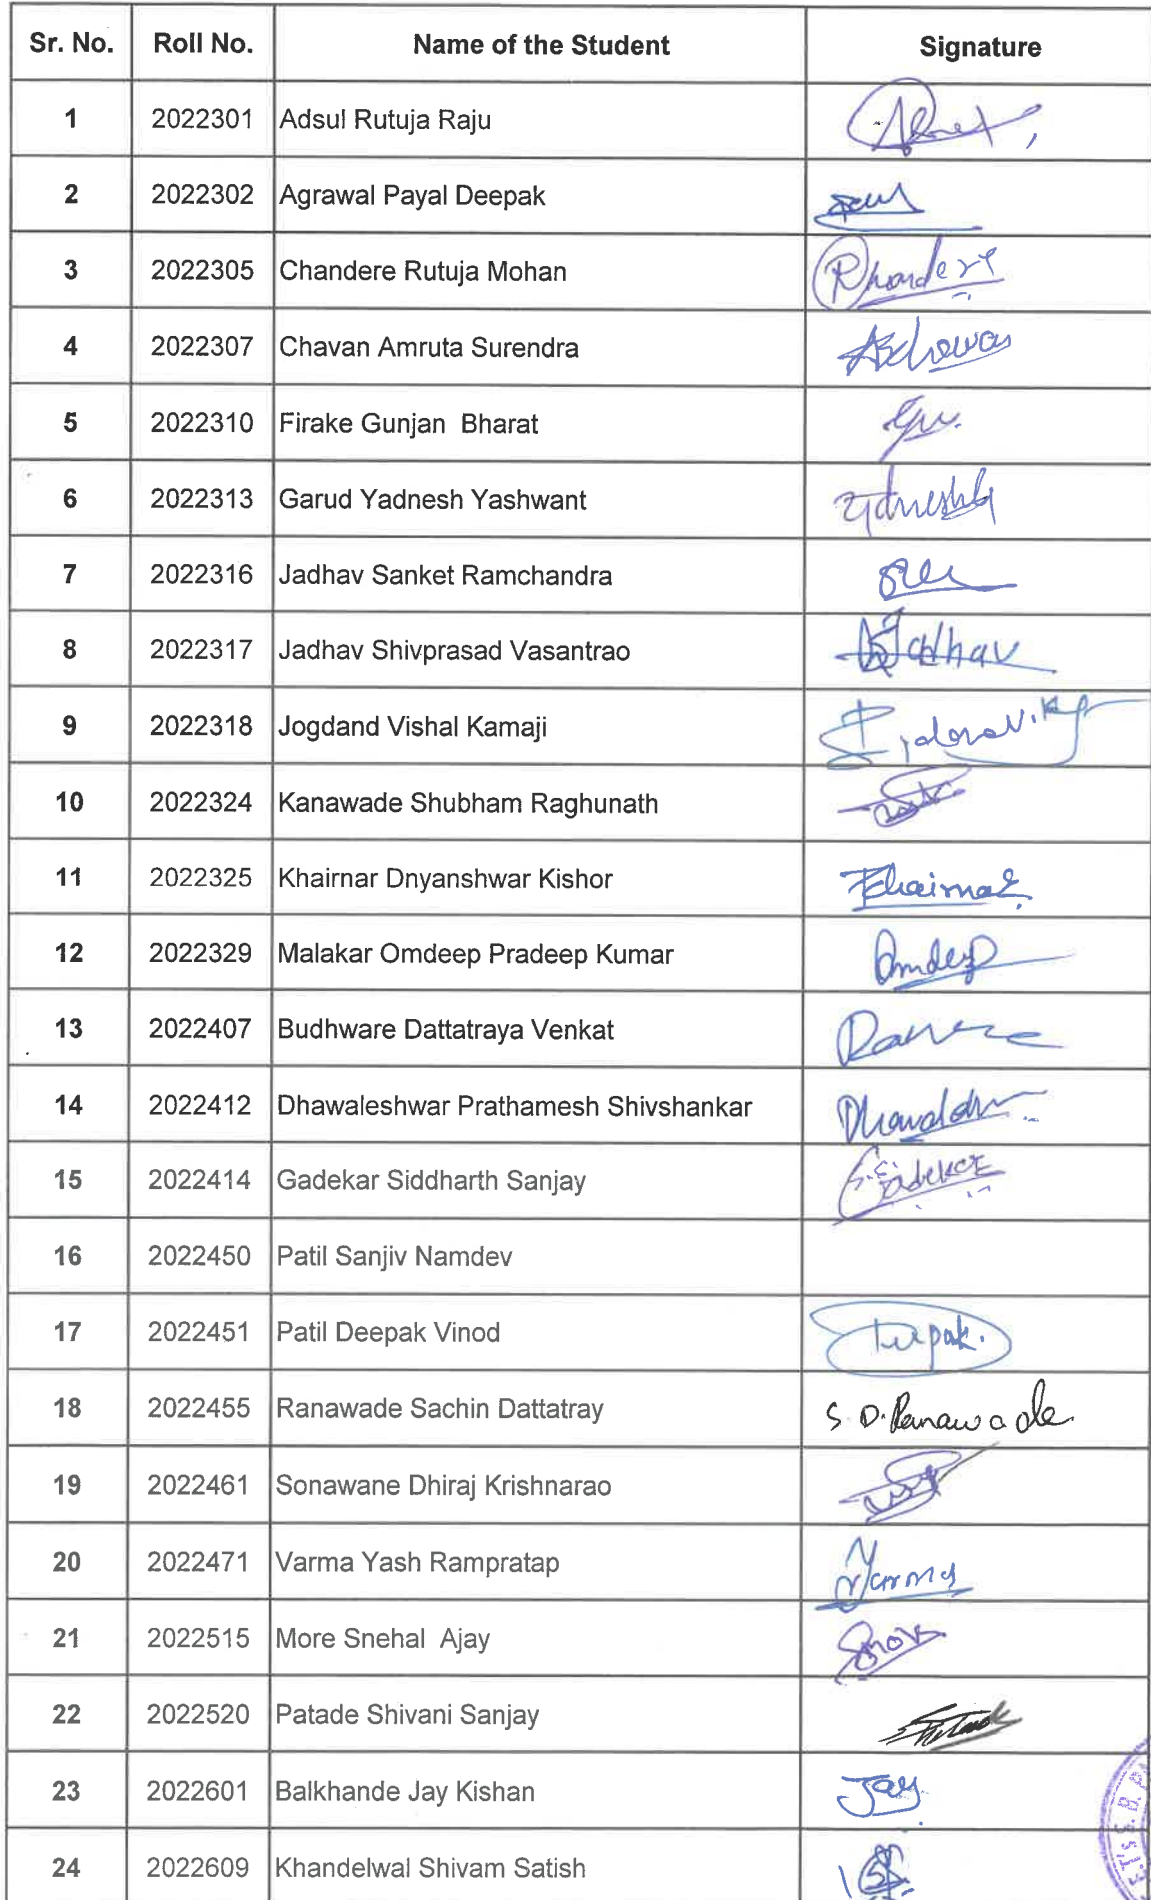 Sr. No. Roll No. Name of the Student Signature
1 2022301 Adsul Rutuja Raju
2 2022302 Agrawal Payal Deepak
3 2022305 Chandere Rutuja Mohan
4 2022307 Chavan Amruta Surendra
5 2022310 Firake Gunjan Bharat
6 2022313 Garud Yadnesh Yashwant
7 2022316 Jadhav Sanket Ramchandra
8 2022317 Jadhav Shivprasad Vasantrao Jadhav
9 2022318 Jogdand Vishal Kamaji
10 2022324 Kanawade Shubham Raghunath
11 2022325 Khairnar Dnyanshwar Kishor Khairnar
12 2022329 Malakar Omdeep Pradeep Kumar Omdeep
13 2022407 Budhware Dattatraya Venkat
14 2022412 Dhawaleshwar Prathamesh Shivshankar
15 2022414 Gadekar Siddharth Sanjay
16 2022450 Patil Sanjiv Namdev
17 2022451 Patil Deepak Vinod Deepak.
18 2022455 Ranawade Sachin Dattatray S. D. Ranawade
19 2022461 Sonawane Dhiraj Krishnarao
20 2022471 Varma Yash Rampratap
21 2022515 More Snehal Ajay
22 2022520 Patade Shivani Sanjay
23 2022601 Balkhande Jay Kishan Jay
24 2022609 Khandelwal Shivam Satish